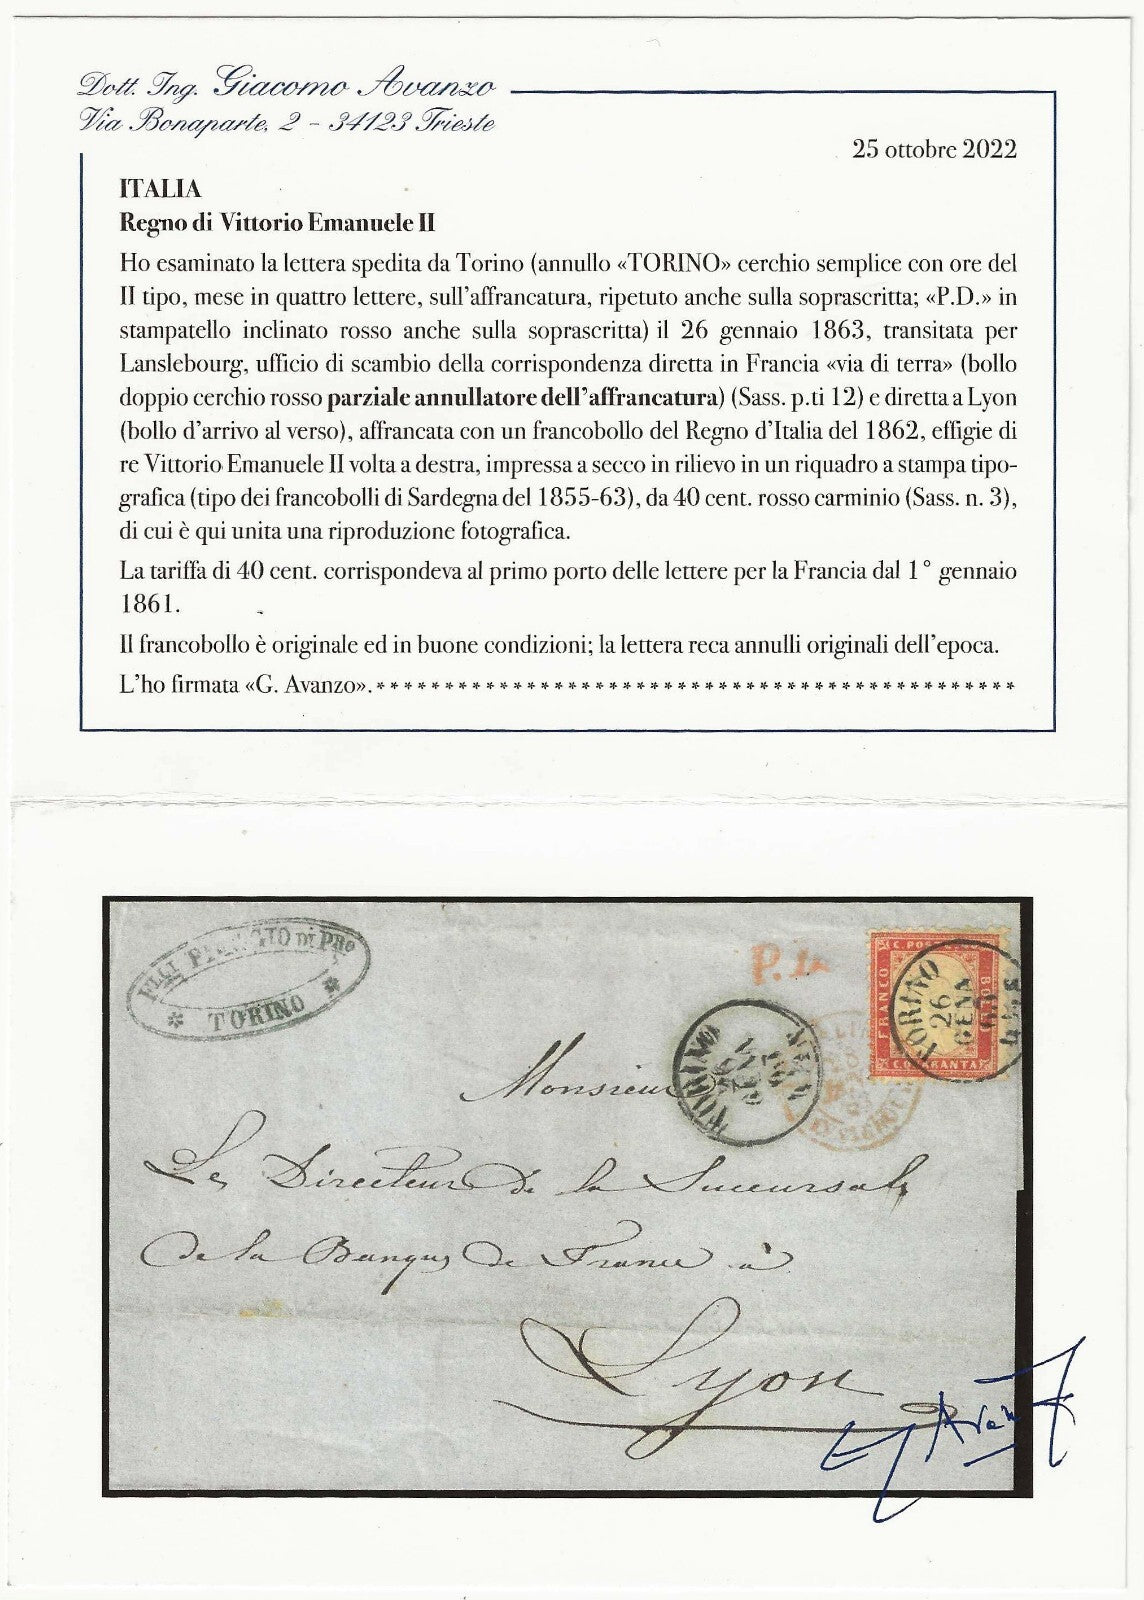 Dott. Ing. Giacomo Avanzo
Via Bonaparte, 2 - 34123 Trieste
25 ottobre 2022
ITALIA
Regno di Vittorio Emanuele II
Ho esaminato la lettera spedita da Torino (annullo «TORINO» cerchio semplice con ore del
II tipo, mese in quattro lettere, sull'affrancatura, ripetuto anche sulla soprascritta; «P.D.» in
stampatello inclinato rosso anche sulla soprascritta) il 26 gennaio 1863, transitata per
Lanslebourg, ufficio di scambio della corrispondenza diretta in Francia «via di terra» (bollo
doppio cerchio rosso parziale annullatore dell'affrancatura) (Sass. p.ti 12) e diretta a Lyon
(bollo d'arrivo al verso), affrancata con un francobollo del Regno d'Italia del 1862, effigie di
re Vittorio Emanuele II volta a destra, impressa a secco in rilievo in un riquadro a stampa tipo-
grafica (tipo dei francobolli di Sardegna del 1855-63), da 40 cent. rosso carminio (Sass. n. 3),
di cui è qui unita una riproduzione fotografica.
La tariffa di 40 cent. corrispondeva al primo porto delle lettere per la Francia dal 1° gennaio
1861.
Il francobollo è originale ed in buone condizioni; la lettera reca annulli originali dell'epoca.
L'ho firmata «G. Avanzo». * * * * * * * * * * * * * * * * * * * * * * * * * * * * * * * * * * * * * * * * * * * * * * *
DI PRO
TORINO
P.
C. POS
FRANCO
BOLLO
QUARANTA
TORINO
26
GENA
63
TORINO
26
GENA
63
Monsieur
Le Directeur de la Succursale
de la Banque de France à
Lyon